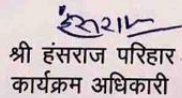 हंसराज
श्री हंसराज परिहार
कार्यक्रम अधिकारी